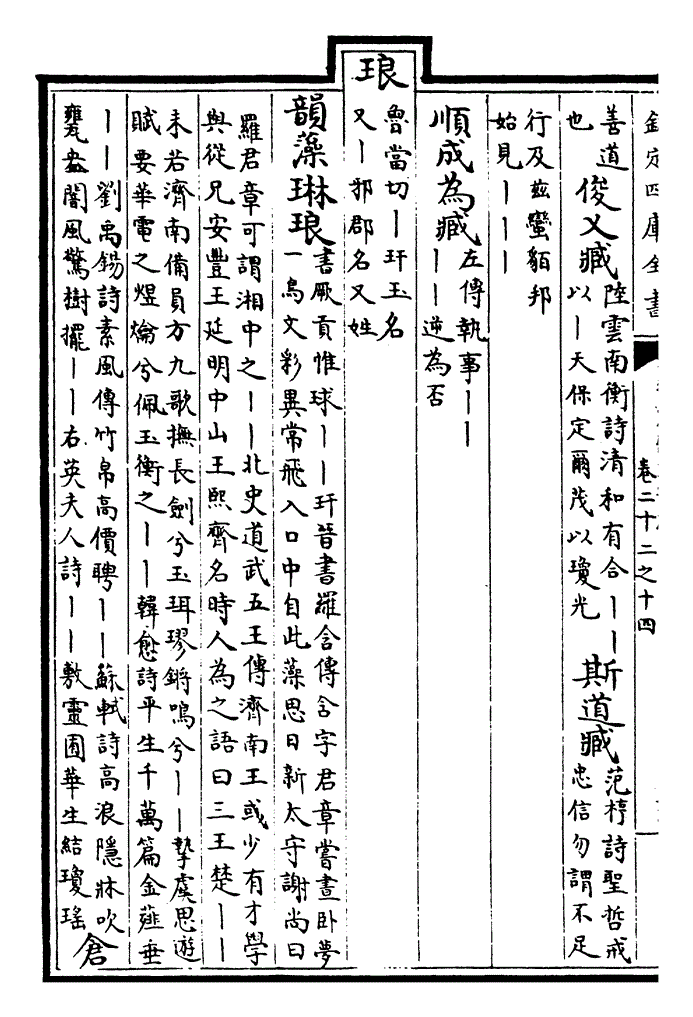 欽定四庫全書
卷二十二之十四
善道
也
俊乂臧
陸雲南衡詩清和有合丨丨
以丨天保定爾茂以瓊光
斯道臧
范梈詩聖哲戒
忠信勿謂不足
行及茲蠻貊邦
始見丨丨丨
順成為臧
左傳執事丨丨
丨丨逆為否
琅
魯當切丨玕玉名
又丨邪郡名又姓
韻藻琳琅
書厥貢惟球丨丨玕晉書羅含傳含字君章嘗晝卧夢
一鳥文彩異常飛入口中自此藻思日新太守謝尚曰
羅君章可謂湘中之丨丨北史道武五王傳濟南王彧少有才學
與從兄安豐王延明中山王熙齊名時人為之語曰三王楚丨丨
未若濟南備員方九歌撫長劍兮玉珥璆鏘鳴兮丨丨摯虞思遊
賦要華電之煜爚兮佩玉衡之丨丨韓愈詩平生千萬篇金薤垂
丨丨劉禹錫詩素風傳竹帛高價聘丨丨蘇軾詩高浪隱牀吹
甕盎闇風驚樹擺丨丨右英夫人詩丨丨敷靈囿華生結瓊瑤
倉